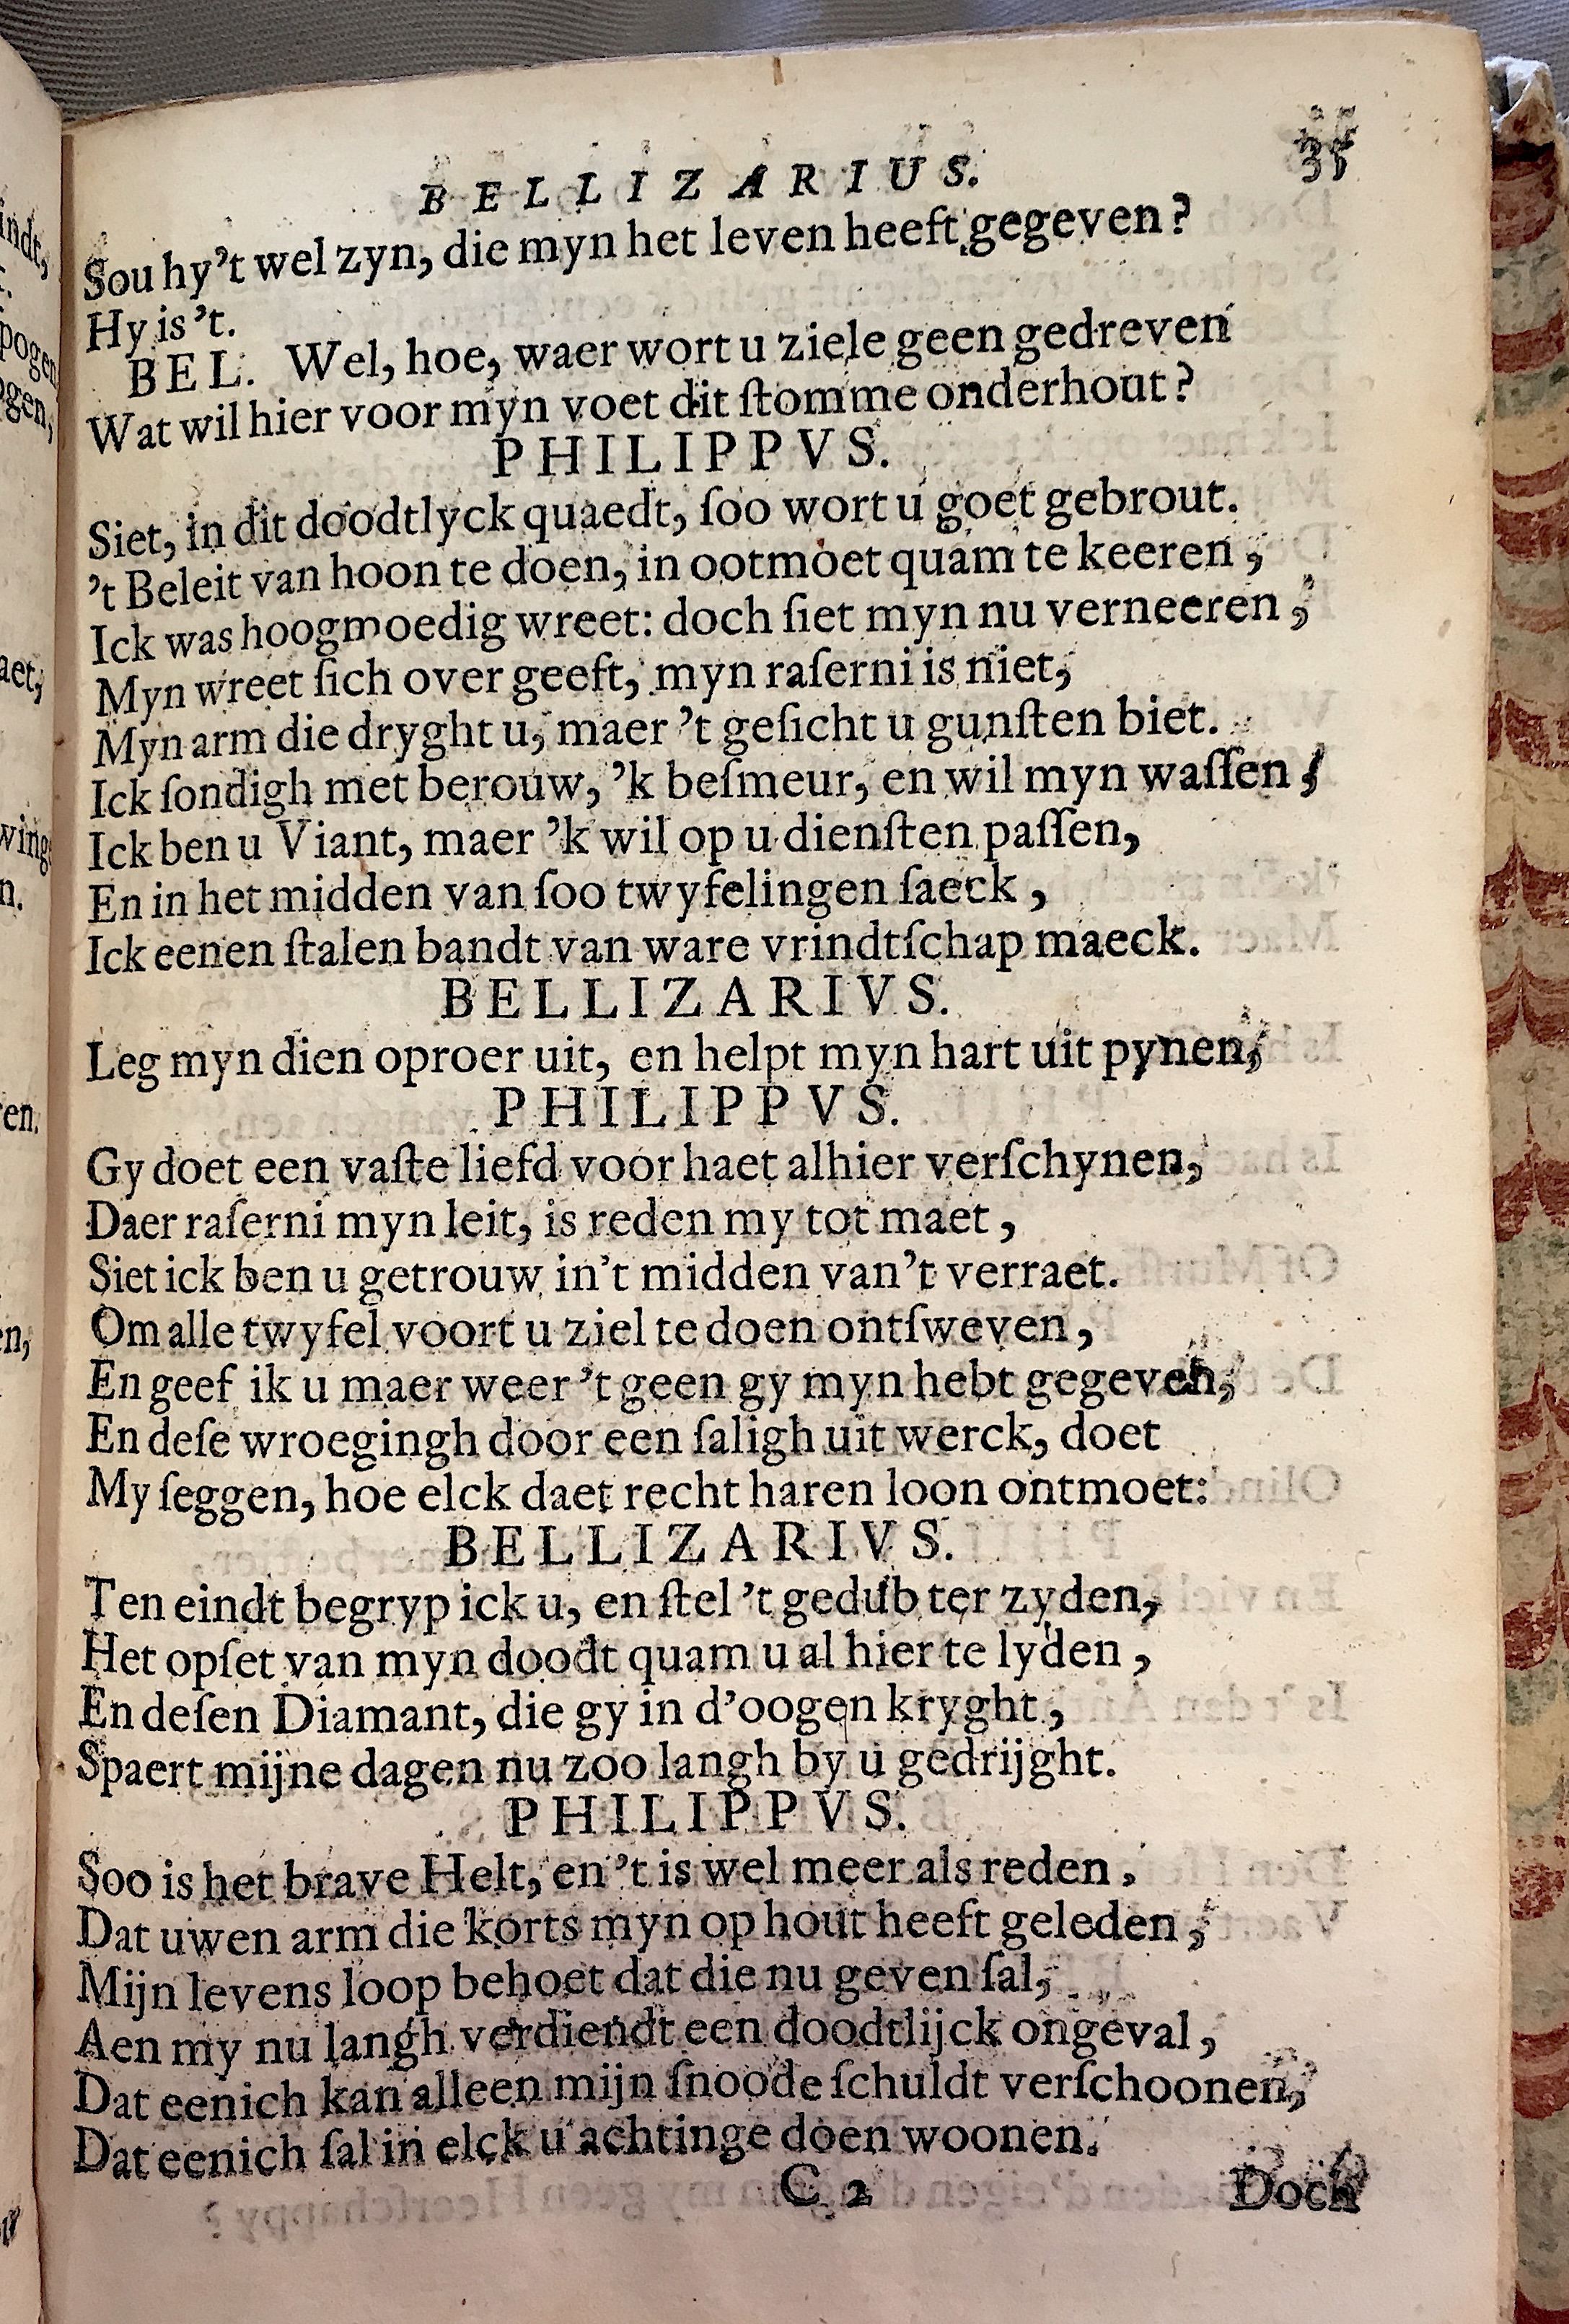 BELLIZARIUS. 35
Sou hy 't wel zyn, die myn het leven heeft gegeven?
Hy is 't.
BEL. Wel, hoe, waer wort u ziele geen gedreven
Wat wil hier voor myn voet dit ſtomme onderhout?
PHILIPPVS.
Siet, in dit doodtlyck quaedt, ſoo wort u goet gebrout.
't Beleit van hoon te doen, in ootmoet quam te keeren,
Ick was hoogmoedig wreet: doch ſiet myn nu verneeren,
Myn wreet ſich over geeft, myn raſerni is niet,
Myn arm die dryght u, maer 't geſicht u gunſten biet.
Ick ſondigh met berouw, 'k beſmeur, en wil myn waſſen,
Ick ben u Viant, maer 'k wil op u dienſten paſſen,
En in het midden van ſoo twyfelingen ſaeck,
Ick eenen ſtalen bandt van ware vrindtſchap maeck.
BELLIZARIVS.
Leg myn dien oproer uit, en helpt myn hart uit pynen,
PHILIPPVS.
Gy doet een vaſte liefd voor haet alhier verſchynen,
Daer raſerni myn leit, is reden my tot maet,
Siet ick ben u getrouw in't midden van't verraet.
Om alle twyfel voort u ziel te doen ontſweven,
En geef ik u maer weer 't geen gy myn hebt gegeven,
En deſe wroegingh door een ſaligh uit werck, doet
My ſeggen, hoe elck daet recht haren loon ontmoet:
BELLIZARIVS.
Ten eindt begryp ick u, en ſtel 't gedub ter zyden,
Het opſet van myn doodt quam u al hier te lyden,
En deſen Diamant, die gy in d'oogen kryght,
Spaert mijne dagen nu zoo langh by u gedrijght.
PHILIPPVS.
Soo is het brave Helt, en 't is wel meer als reden,
Dat uwen arm die korts myn op hout heeft geleden,
Mijn levens loop behoet dat die nu geven ſal,
Aen my nu langh verdiendt een doodtlijck ongeval,
Dat eenich kan alleen mijn ſnoode ſchuldt verſchoonen,
Dat eenich ſal in elck u achtinge doen woonen.
C 2 Doch